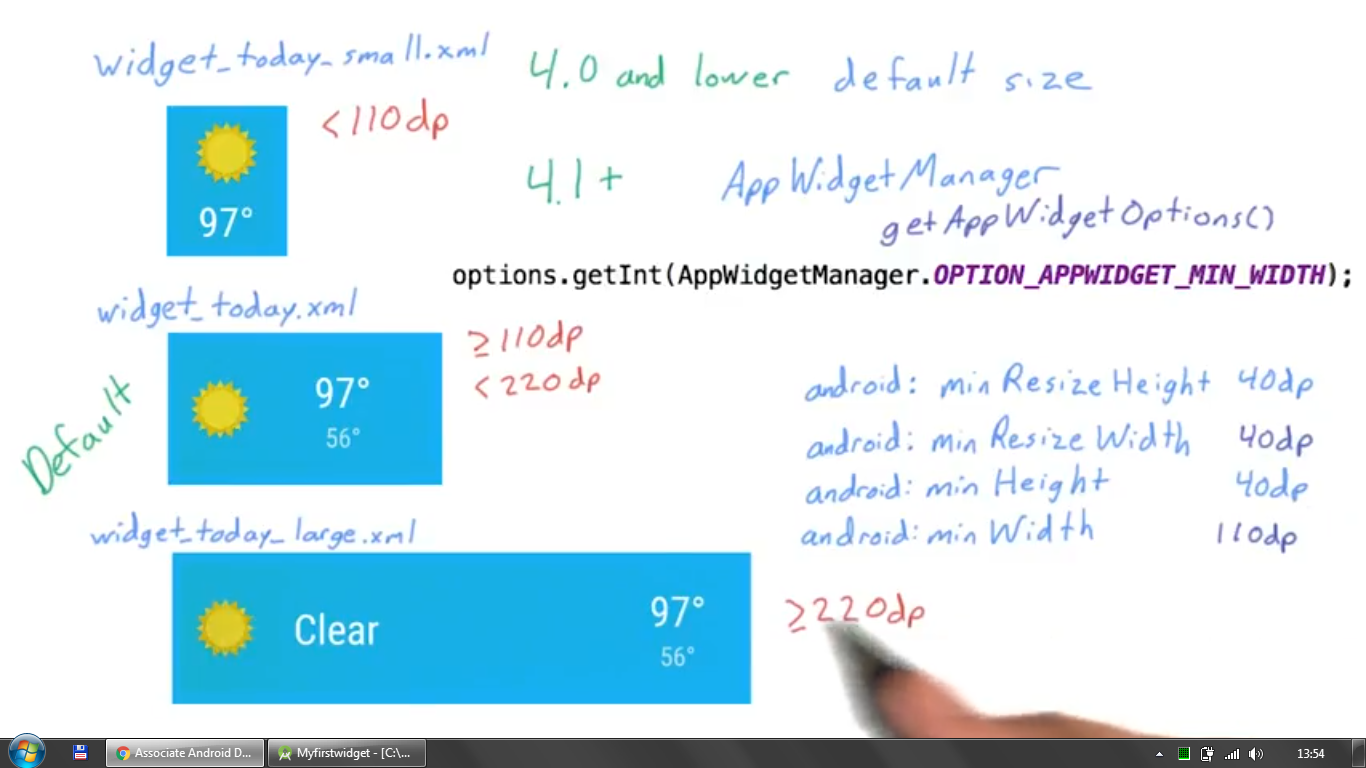 widget_today_small.xml
4.0 and lower default size
<110dp
97°
4.1+ AppWidgetManager
getAppWidgetOptions()
options.getInt(AppWidgetManager.OPTION_APPWIDGET_MIN_WIDTH);
widget_today.xml
≥110dp
<220dp
97°
56°
Default
android: minResizeHeight 40dp
android: minResizeWidth 40dp
android: minHeight 40dp
android: minWidth 110dp
widget_today_large.xml
Clear
97°
56°
≥220dp
Associate Android D... Myfirstwidget - [C:\... 13:54